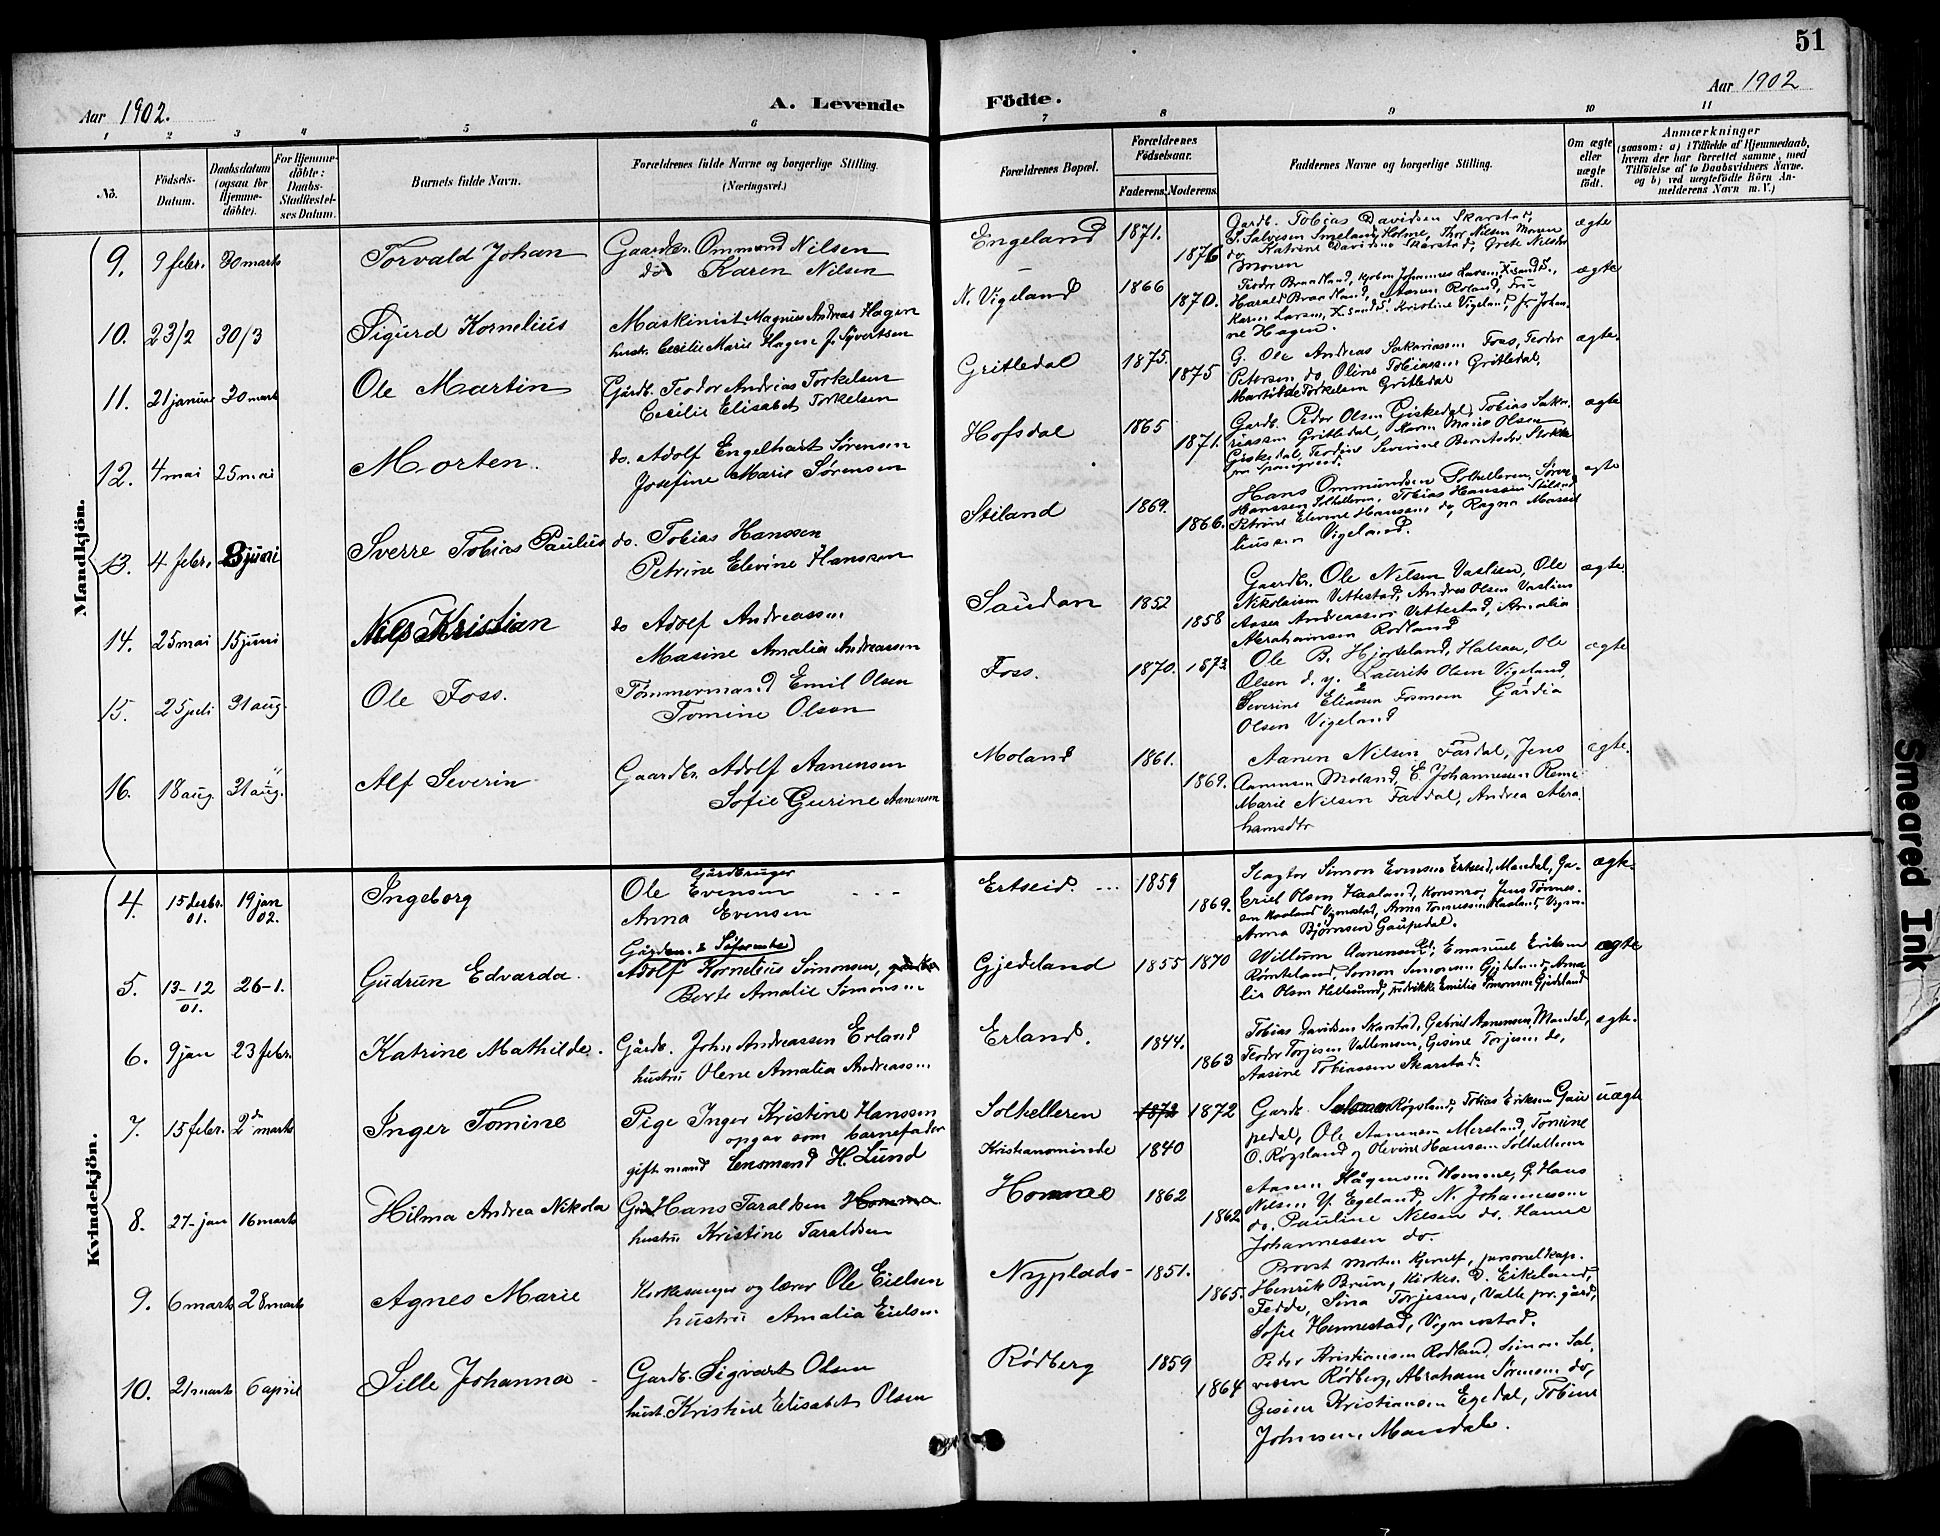 51
Aar 1902.
A. Levende
Födte.
Aar 1902
1 2 3 4 5 6 7 8 9 10 11
No.
Födsels-Datum.
Daabsdatum (ogsaa for Hjemme-döbte).
For Hjemme-döbte: Daabs-Stadfæstel-ses Datum.
Barnets fulde Navn.
Forældrenes fulde Navne og borgerlige Stilling. (Næringsvei.)
Forældrenes Bopæl.
Forældrenes Födselsaar.
Faderens. Moderens.
Faddernes Navne og borgerlige Stilling.
Om ægte eller uægte født.
Anmærkninger
(saasom: a) i Tilfælde af Hjemmedaab,
hvem der har forrettet samme, med
Tilføielse af to Daabsvidners Navne.
og b) ved uægtefødte Börn An-
melderens Navn m. V.)
Mandkjön.
9. 9 febr. 30 marts Torvald Johan
Gaardbr. Ommund Nilsen
do Karen Nilsen
Engeland 1871. 1876
Gardb. Tobias Davidsen Skarstad,
T. Salvesen Smeland, Holme, Thor Nilsen Monen
do Katrine Davidsen Skarstad, Grete Nilsen
Monen
ægte
10. 23/2 30/3 Sigurd Kornelius
Maskinist Magnus Andreas Hagen
hustr. Cecilie Marie Hagen f. Syvertsen
N. Vigeland 1866 1870.
Teodor Braadland, kjøbm Johannes Larsen, X.sandS.,
Harald Braadland, Aanen Roland, Fru
Karen Larsen, X.sandS. Kristine Vigeland, fr Johan-
ne Hagen.
ægte
11. 21 januar 30 marts Ole Martin
Gårdb. Teodor Andreas Torkelsen
Cecilie Elisabet Torkelsen
Gritledal 1875. 1875
G. Ole Andreas Sakariassen Foss, Teodor
Petersen do, Oline Tobiassen Gritledal,
Martilde Torkelsen Gritledal
ægte.
12. 4 mai 25 mai Morten.
do. Adolf Engelhart Sørensen
Josefine Marie Sørensen
Hofsdal 1865 1871.
Gardb. Peder Olsen Giskedal, Tobias Saka-
riassen Gritledal, Karen Marie Olsen
Giskedal, Teodine Severine Berntsdr.
ægte
13. 4 febr. 8 juni Sverre Tobias Paulius
do. Tobias Hanssen
Petrine Elevine Hanssen
Stiland 1869. 1866.
Hans Ommundsen Solhelleren, Søren
Hanssen Solhelleren, Tobias Hanssen Stiland
Petrine Elevine Hanssen do, Ragna Massi-
liussen Vigeland.
ægte
14. 25 mai 15 juni Nils Kristian
do Adolf Andreassen
Masine Amalia Andreassen
Saudan 1852 1858
Gaardbr. Ole Nilsen Vaslien, Ole
Nikolaisen Vettestad, Andreas Olsen Vaslien
Aasea Andreassen Vettestad, Amalia
Abrahamsen Rodland
ægte.
15. 25 juli 31 aug. Ole Foss.
Tømmermand Emil Olsen
Tomine Olsen
Foss. 1870. 1873.
Ole B. Hjorteland, Halsaa, Ole
Olsen d. y. Laurits Olsen Vigeland,
Severine Eliassen Fosmoen Gårdia
Olsen Vigeland
ægte
16. 18 aug. 31 aug. Alf Severin
Gaardbr. Adolf Aanensen
Sofie Gurine Aanensen
Moland 1861. 1869.
Aanen Nilsen Fardal, Jens
Aanensen Moland, E. Johannessen Reme
Marie Nilsen Fardal, Andrea Abra-
hamsdtr
ægte.
Kvindekjön.
4. 15 decbr. 01. 19 jan 02. Ingeborg
Gårdbruger
Ole Evensen
Anna Evensen
Ertseid. 1859 1869.
Slagter Simon Evensen Ertseid, Mandal, Ga-
briel Olsen Haaland, Konsmo, Jens Tønnes-
sen Haaland Vigmostad, Anna Tønnessen Haaland, Vigm.
Anna Bjørnsen Gaupedal.
ægte.
5. 13-12 01. 26-1. Gudrun Edvarda.
Adolf Kornelius Simonsen,
Berte Amalie Simonsen
Gjedeland 1855 1870
Willum Aanensen Emanuel Eriksen
Rømteland, Simon Simonsen Gjedeland, Ama-
lie Olsen Hellesund, Fredrikke Emilie Simonsen Gjedeland
ægte
6. 9 jan 23 febr. Katrine Mathilde.
Gårdb. John Andreassen Erland
hustru Olene Amalia Andreassen
Erland. 1844. 1863
Tobias Davidsen Skarstad, Gabriel Aanensen, Mandal,
Teodor Torjesen Vallemoen, Gesine Torjesen do,
Aasine Tobiassen Skarstad.
ægte.
7. 15 febr. 2d marts Inger Tomine
Pige Inger Kristine Hanssen
opgav som barnefader
gift mand Lensmand H. Lund
Solhelleren 1872 1872
Kristiansminde 1840
Gardb. Salomon Røgsland, Tobias Eriksen Gau-
pedal, Ole Aanensen Mersland, Tomine
O. Røgsland og Olevine Hanssen Solhelleren
uægte
8. 27-jan 16 marts Hilma Andrea Nikola
Gårdb Hans Taraldsen Homme
hustru Kristine Taraldsen
Homme 1862 1862
Aanen Hågensen Homme, G. Hans
Nilsen Y. Egeland, N. Johannessen
do. Pauline Nilsen do. Hanne
Johannessen do.
9. 6 marts 28 marts Agnes Marie
Kirkesanger og lærer Ole Eielsen
hustru Amalia Eielsen
Nyplads 1851. 1865.
Provst Morten Kjerulf, personelkap.
Henrik Bruun, Kirkes. D. Eikeland,
Fedde, Sina Torjesen, Valle pr. gård,
Sofie Hennestad, Vigmostad.
10. 21 marts 6 april Sille Johanna
Gardb. Sigvart Olsen
hust. Kristine Elisabet Olsen
Rødberg 1859 1864
Peder Kristiansen Rodland, Simon Sal-
vesen Rødberg, Abraham Sørensen do,
Gesine Kristiansen Egedal, Tobine
Johnsen, Mandal.
Smeared Ink